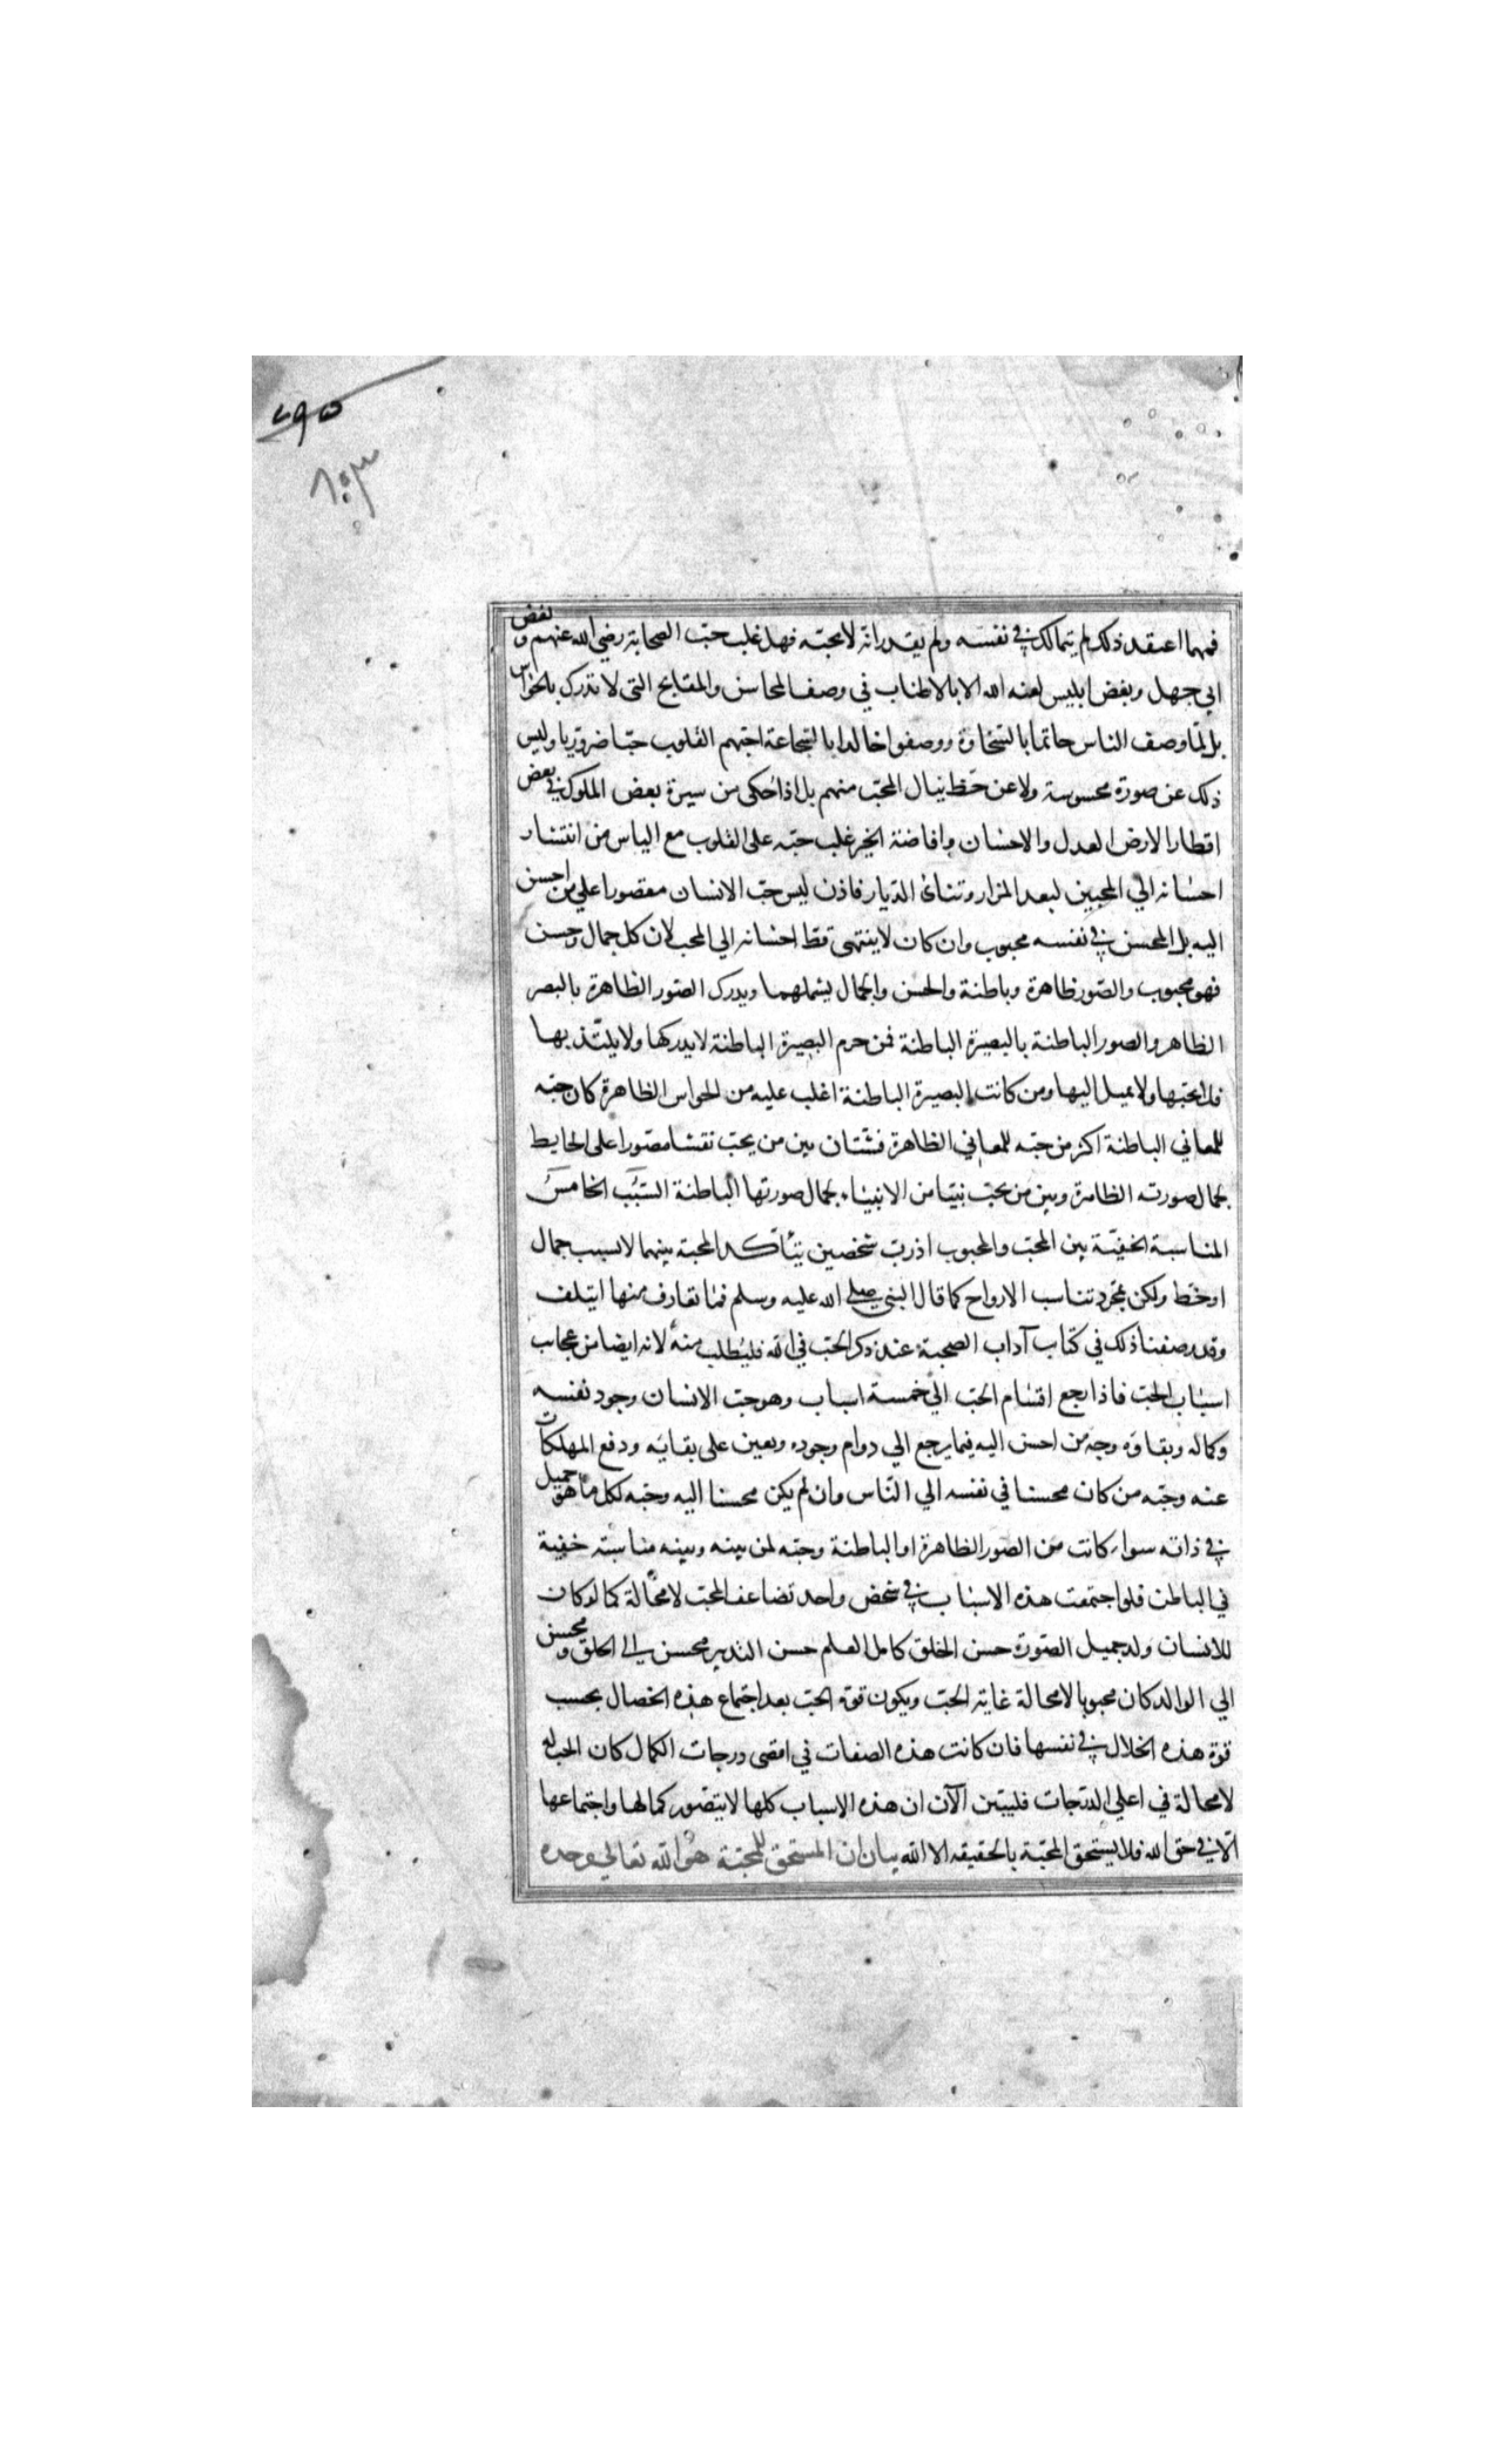 ٢٩٥
فمهما اعتقد ذلك لم يتمالك في نفسه ولم يقدر انّه لا يحبّه فهل غلب حبّ الصحابة رضي الله عنهم و بغض
ابي جهل وبغض ابليس لعنه الله الا بالاطناب في وصف المحاسن والمقابح التي لا تدرك بالحواس
بل لمّا وصف الناس حاتما بالسّخاوة ووصفوا خالدا بالشجاعة احبّهم القلوب حبّا ضروريّا وليس
ذلك عن صورة محسوسة ولا عن حظ ينال المحبّ منهم بل اذا حكى من سيرة بعض الملوك في بعض
اقطار الارض العدل والاحسان وافاضة الخير غلب حبّه على القلوب مع الياس من انتشار
احسانه الي المحبين لبعد المزار وتنائ الدّيار فاذن ليس حبّ الانسان مقصورا علي من احسن
اليه بل المحسن في نفسه محبوب وان كان لا ينتهى قط احسانه الي المحب لان كل جمال وحسن
فهو محبوب والصّور ظاهرة وباطنة والحسن والجمال يشملهما ويدرك الصّور الظاهرة بالبصر
الظاهر والصور الباطنة بالبصيرة الباطنة فمن حرم البصيرة الباطنة لا يدركها ولا يلتّذ بها
فلا يحبّها ولا يميل اليها ومن كانت البصيرة الباطنة اغلب عليه من الحواس الظاهرة كان حبّه
للمعاني الباطنة اكثر من حبّه للمعاني الظاهرة فشتّان بين من يحبّ نقشا مصّورا على الحايط
لجمال صورته الظاهرة وبين من يحبّ نبيّا من الانبياء لجمال صورتها الباطنة السّبَب الخامسَ
المناسبة الخفيّة بين المحبّ والمحبوب اذ ربّ شخصين يتأكد المحبة بينهما لا بسبب جمال
او حظ ولكن بمجرد تناسب الارواح كما قال النبي صلي الله عليه وسلم فما تعارف منها ايتلف
وقد وصفنا ذلك في كتاب آداب الصحبة عند ذكر الحبّ في الله فليُطلب منه لانه ايضا من عجاب
اسباب الحبّ فاذا رجع اقسام الحبّ الي خمسة اسباب وهو حبّ الانسان وجود نفسه
وكماله وبقاؤه وحبّه من احسن اليه فيما يرجع الي دوام وجوده ويعين على بقايه ودفع المهلكات
عنه وحبّه من كان محسنا في نفسه الي النّاس وان لم يكن محسنا اليه وحبّه لكل ما هو جميل
في ذاته سواء كانت من الصور الظاهرة او الباطنة وحبّه لمن بينه وبينه مناسبَة خفية
في الباطن فلو اجتمعت هذه الاسباب في شخص واحد تضاعف الحبّ لا محالة كما لو كان
للانسان ولد جميل الصّورة حسن الخلق كامل العلم حسن التدبير محسن الى الخلق و محسن
الي الوالد كان محبوبا لا محالة غاية الحبّ ويكون قوة الحبّ بعد اجتماع هذه الخصال بحسب
قوة هذه الخلال في نفسها فان كانت هذه الصفات في اقصى درجات الكمال كان الحب له
لا محالة في اعلي الدّرجات فليبيّن الآن ان هذه الاسباب كلها لا يتصّور كمالها واجتماعها
الّا في حق الله فلا يستحق المحبّة بالحقيقه الا الله بيان ان المستحق للمحبّة هُو الله تعالي وحده